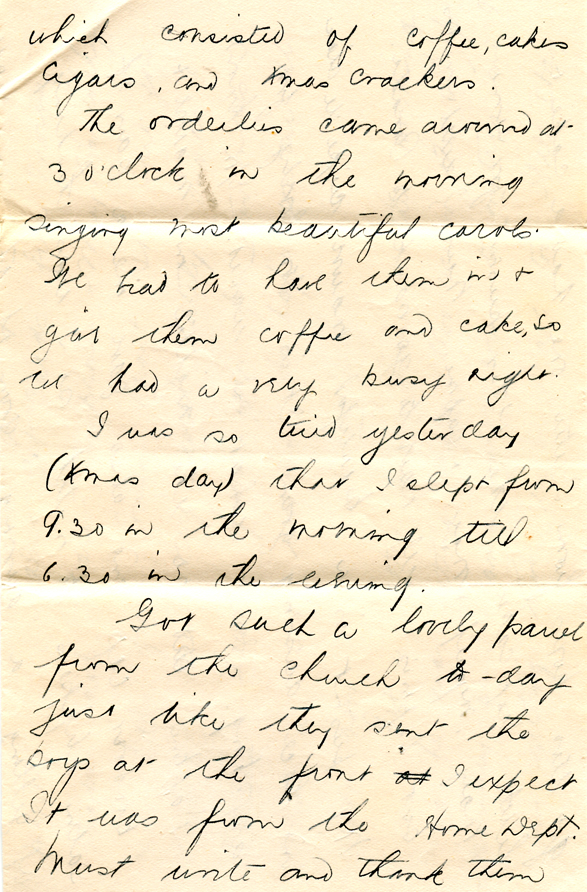 which consisted of coffee, cakes
Cigars, and Xmas Crackers.
The orderlies came around at
3 o'clock in the morning
singing most beautiful carols.
We had to have them in &
give them coffee and cake, so
we had a very busy night.
I was so tired yesterday
(Xmas day) that I slept from
9.30 in the morning till
6.30 in the evening.
Got such a lovely parcel
from the church to-day
just like they sent the
boys at the front at I expect
It was from the Home Dept.
Must write and thank them